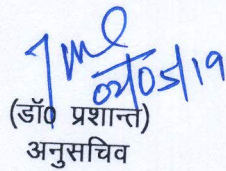 02/05/19
(डॉ0 प्रशान्त)
अनुसचिव